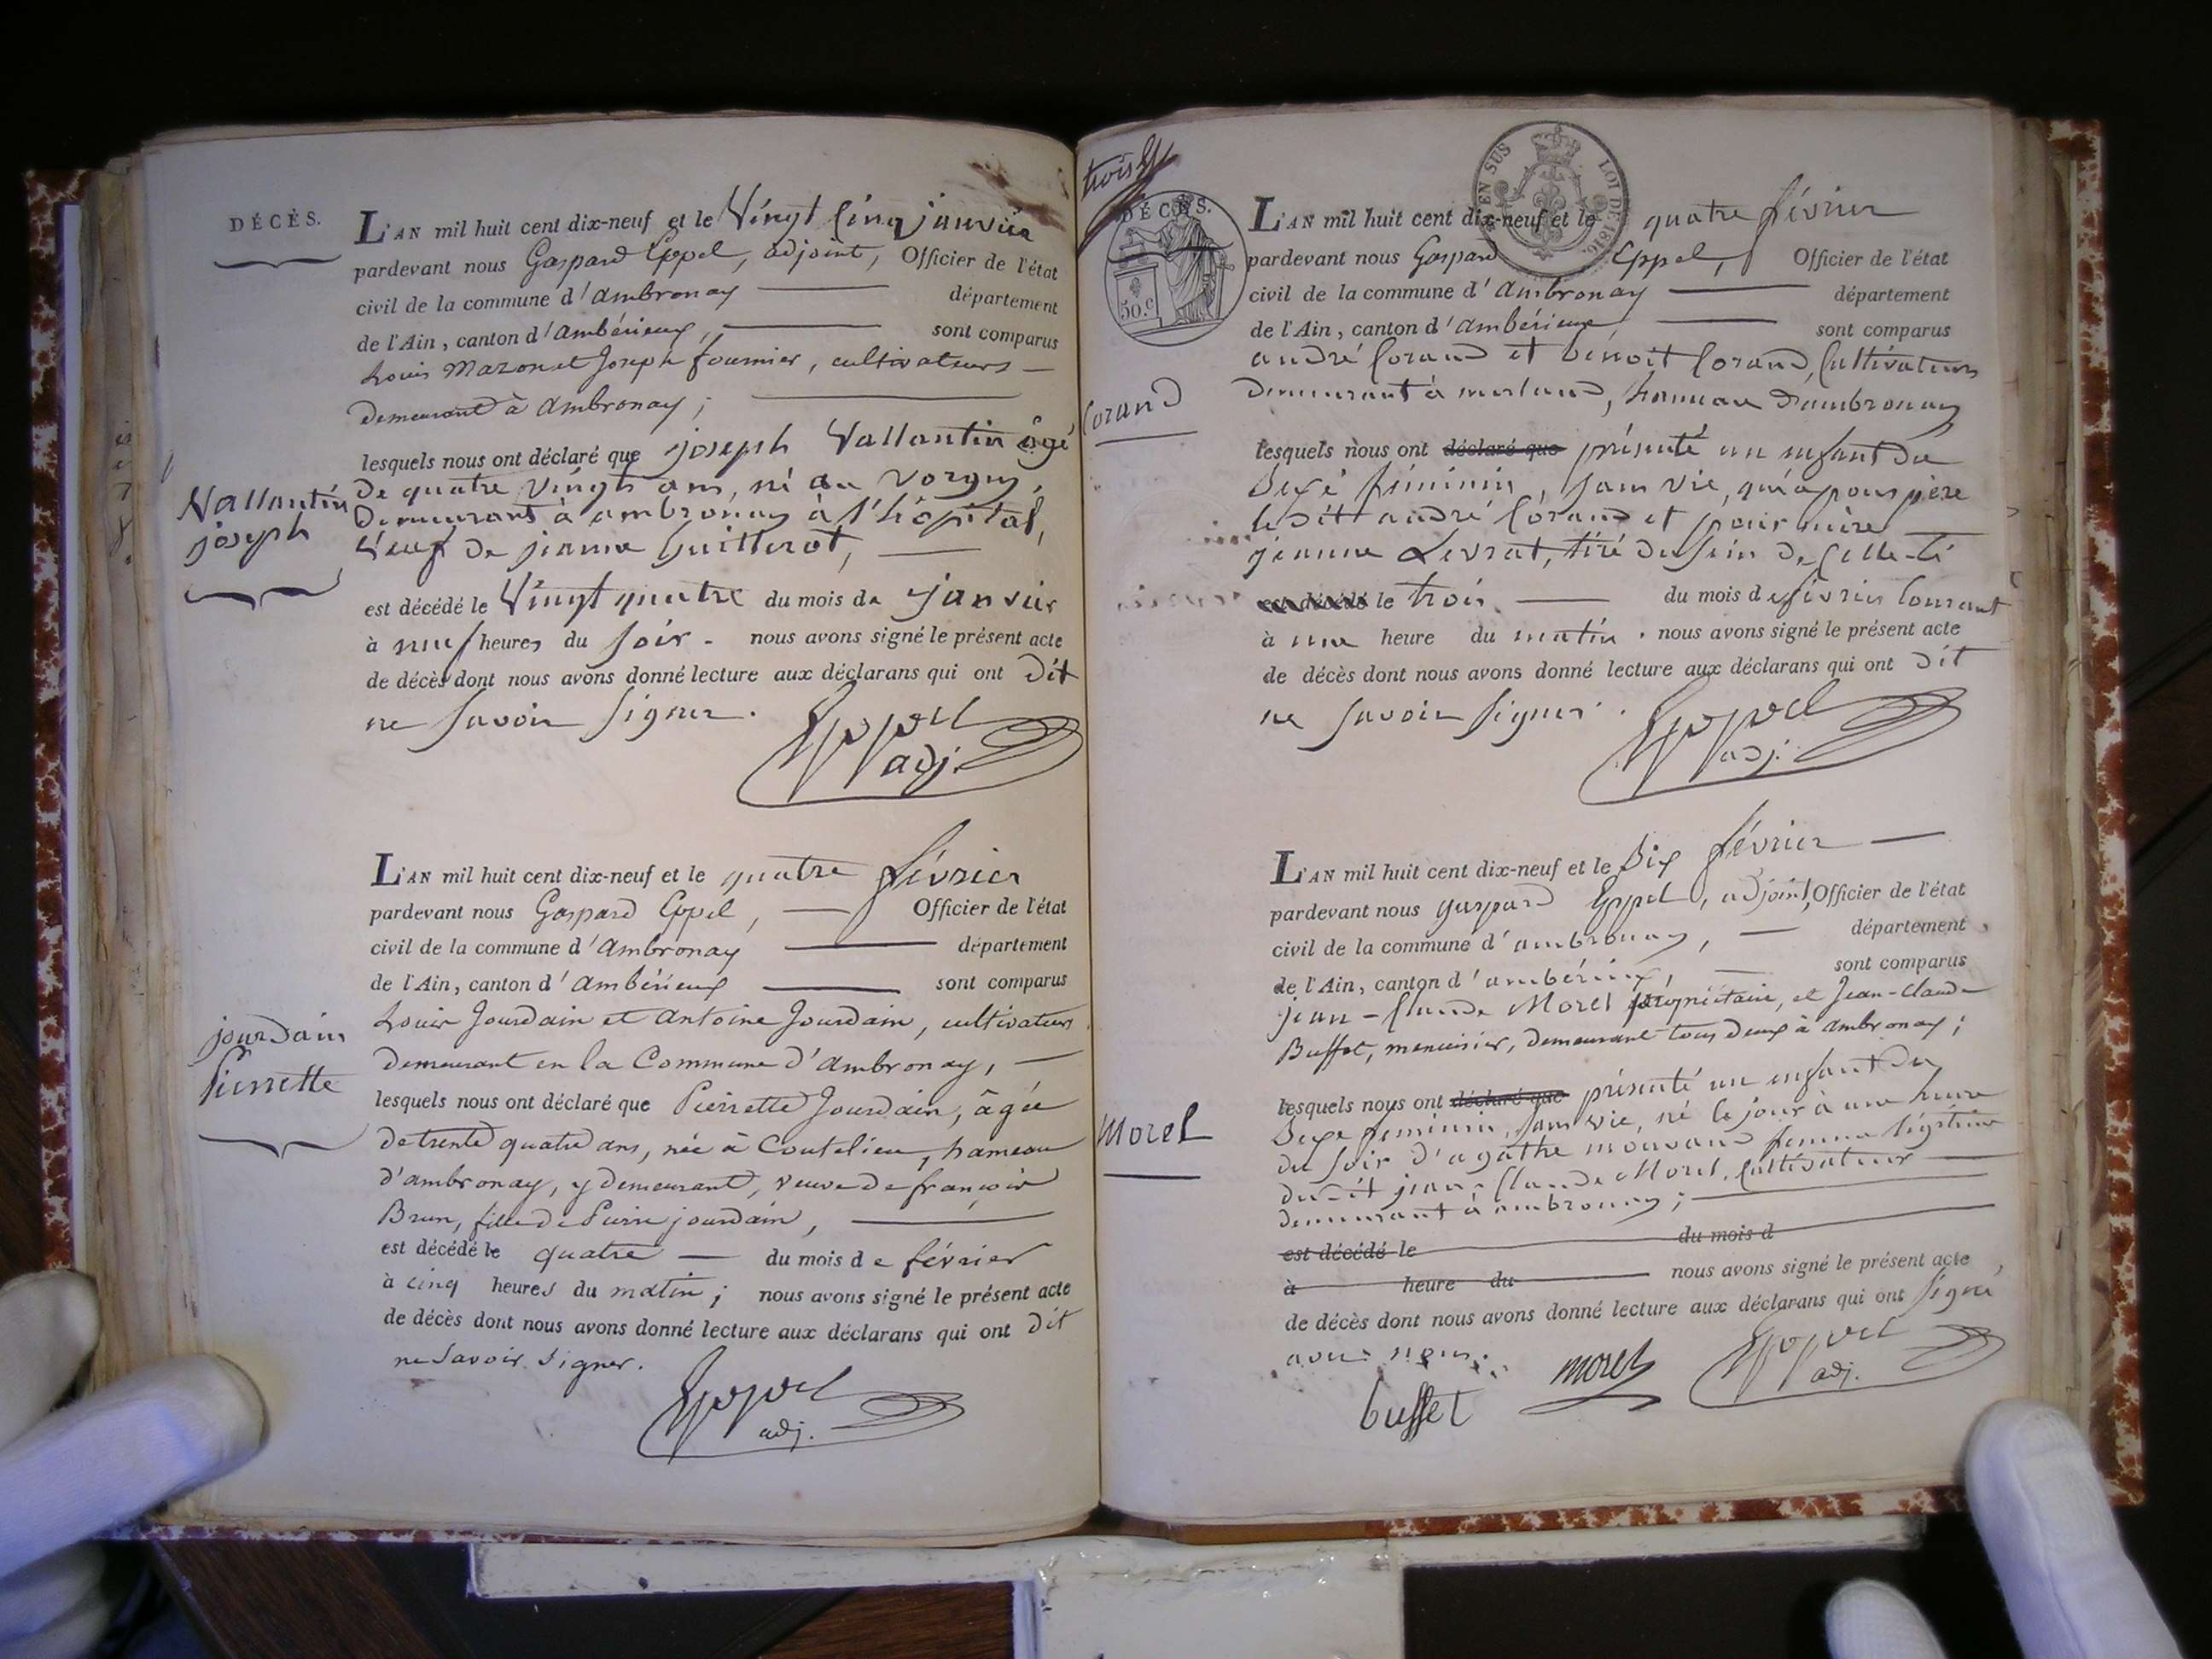 DÉCÈS.
L'AN mil huit cent dix-neuf et le Vingt Cinq janvier
pardevant nous Gaspard Eppel, adjoint, Officier de l'état
civil de la commune d'ambronay département
de l'Ain, canton d'ambérieux, sont comparus
Louis Mazon et Joseph fournier, cultivateurs
demeurant à ambronay;
lesquels nous ont déclaré que joseph Vallantin âgé
Vallantin
joseph
de quatre vingts ans, né au
demeurant à ambronay à l'hôpital,
Veuf de jeanne Guillerot,
est décédé le Vingt quatre du mois de janvier
à neuf heures du soir. nous avons signé le présent acte
de décès dont nous avons donné lecture aux déclarans qui ont dit
ne savoir signer.
Eppel
adj.
L'AN mil huit cent dix-neuf et le quatre février
pardevant nous Gaspard Eppel, Officier de l'état
civil de la commune d'ambronay département
de l'Ain, canton d'ambérieux sont comparus
Louis Jourdain et Antoine Jourdain, cultivateurs
demeurant en la Commune d'ambronay,
jourdain
Pierrette
lesquels nous ont déclaré que Pierrette Jourdain, âgée
de trente quatre ans, née à Coutelieu, hameau
d'ambronay, y demeurant, veuve de françois
Brun, fille de Pierre jourdain,
est décédé le quatre du mois de février
à cinq heures du matin; nous avons signé le présent acte
de décès dont nous avons donné lecture aux déclarans qui ont dit
ne savoir signer.
Eppel
adj.
trois
DÉCÈS.
50.c
EN SUS
LOI DE 1816.
L'AN mil huit cent dix-neuf et le quatre février
pardevant nous Gaspard Eppel, Officier de l'état
civil de la commune d'ambronay département
de l'Ain, canton d'ambérieux sont comparus
andré Corand et benoit Corand, Cultivateurs
demeurant à merland, hameau d'ambronay
Corand
lesquels nous ont déclaré que présenté un enfant du
sexe féminin, sans vie, qui a pour père
le dit andré Corand et pour mère
jeanne Levrat, tiré du sein de celle-ci
est décédé le trois du mois de février courant
à une heure du matin. nous avons signé le présent acte
de décès dont nous avons donné lecture aux déclarans qui ont dit
ne savoir signer.
Eppel
adj.
L'AN mil huit cent dix-neuf et le Six février
pardevant nous gaspard Eppel, adjoint, Officier de l'état
civil de la commune d'ambronay, département
de l'Ain, canton d'ambérieux, sont comparus
jean-Claude Morel propriétaire, et Jean-Claude
Buffet, menuisier, demeurant tous deux à ambronay;
Morel
lesquels nous ont déclaré que présenté un enfant du
Sexe féminin, sans vie, né le jour à une heure
du soir d'agathe mouvand femme légitime
dudit jean-Claude Morel, Cultivateur
demeurant à ambronay;
est décédé le du mois d
à heure du nous avons signé le présent acte
de décès dont nous avons donné lecture aux déclarans qui ont signé
avec nous.
buffet
morel
Eppel
adj.